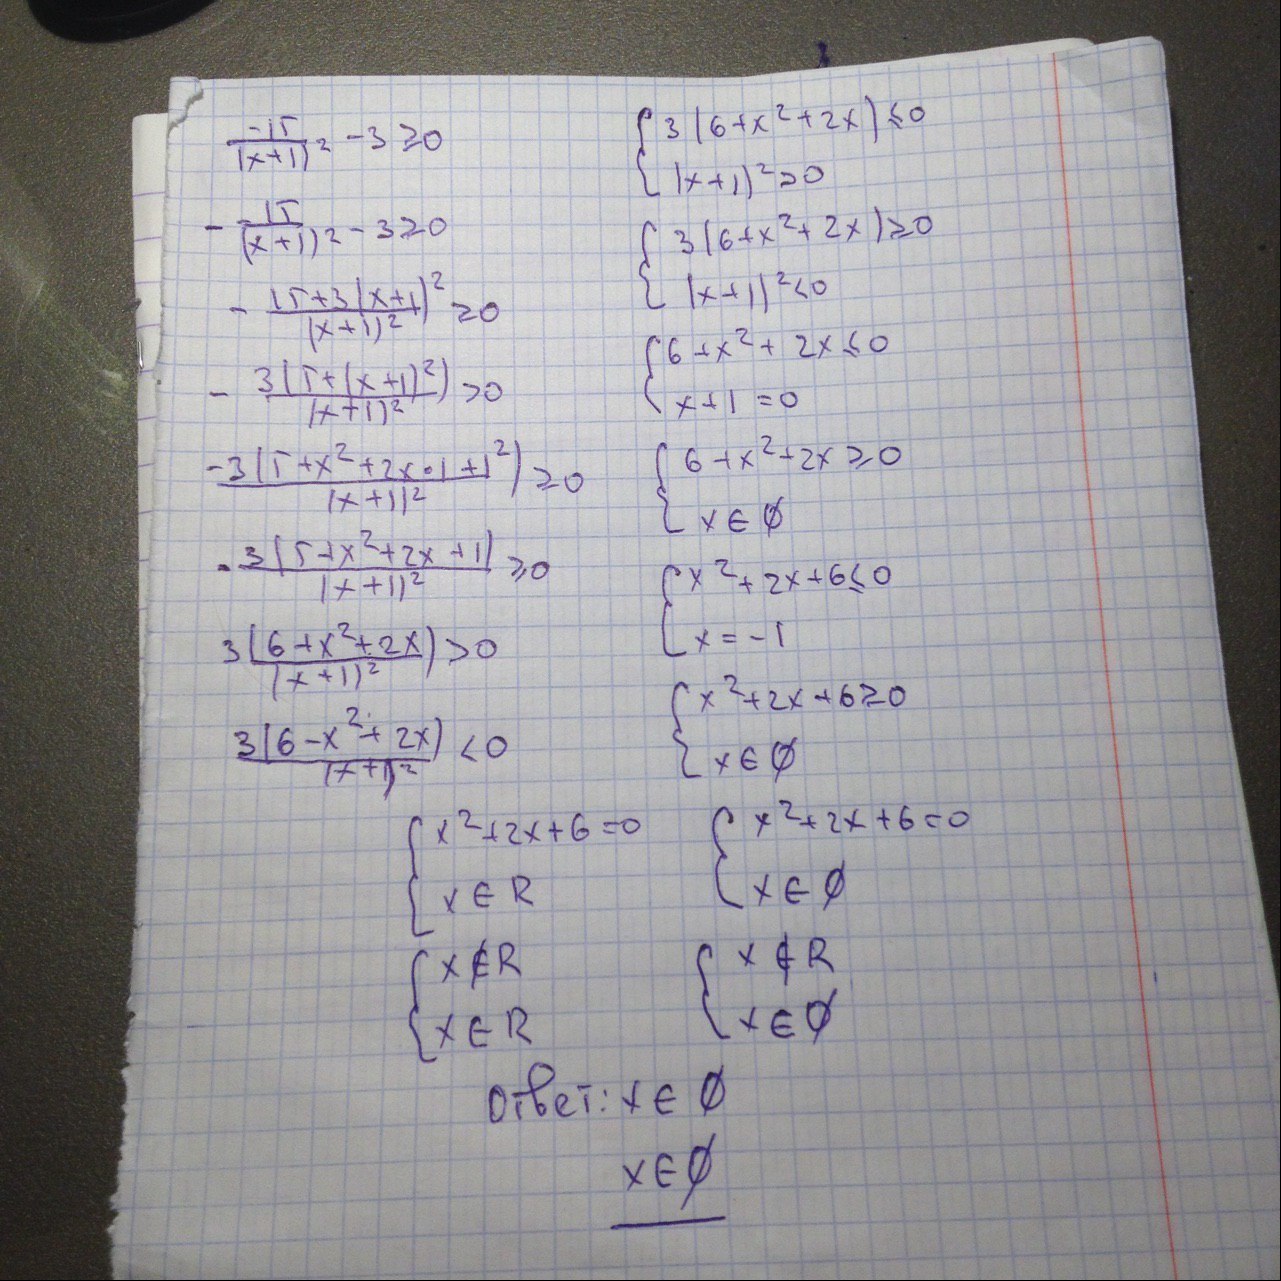 -15/(x+1)² -3≥0
- 15/(x+1)² -3≥0
- (15+3(x+1)²)/(x+1)² ≥0
- 3(5+(x+1)²)/(x+1)² >0
-3(5+x²+2x•1+1²)/(x+1)² ≥0
-3(5+x²+2x+1)/(x+1)² ≥0
3(6+x²+2x)/(x+1)² >0
3(6-x²+2x)/(x+1)² <0
{3(6+x²+2x)≤0
(x+1)²>0
{3(6+x²+2x)≥0
(x+1)²<0
{6+x²+2x≤0
x+1=0
{6+x²+2x≥0
x∈∅
{x²+2x+6≤0
x=-1
{x²+2x+6≥0
x∈∅
{x²+2x+6=0
x∈R
{x∉R
x∈R
{x²+2x+6=0
x∈∅
{x∉R
x∈∅
Ответ: x∈∅
x∈∅